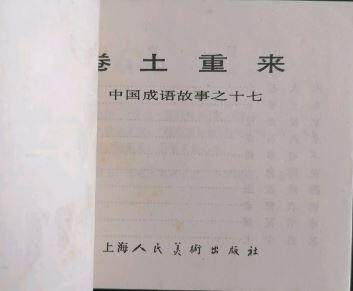 卷土重来
中国成语故事之十七
上海人民美術出版社